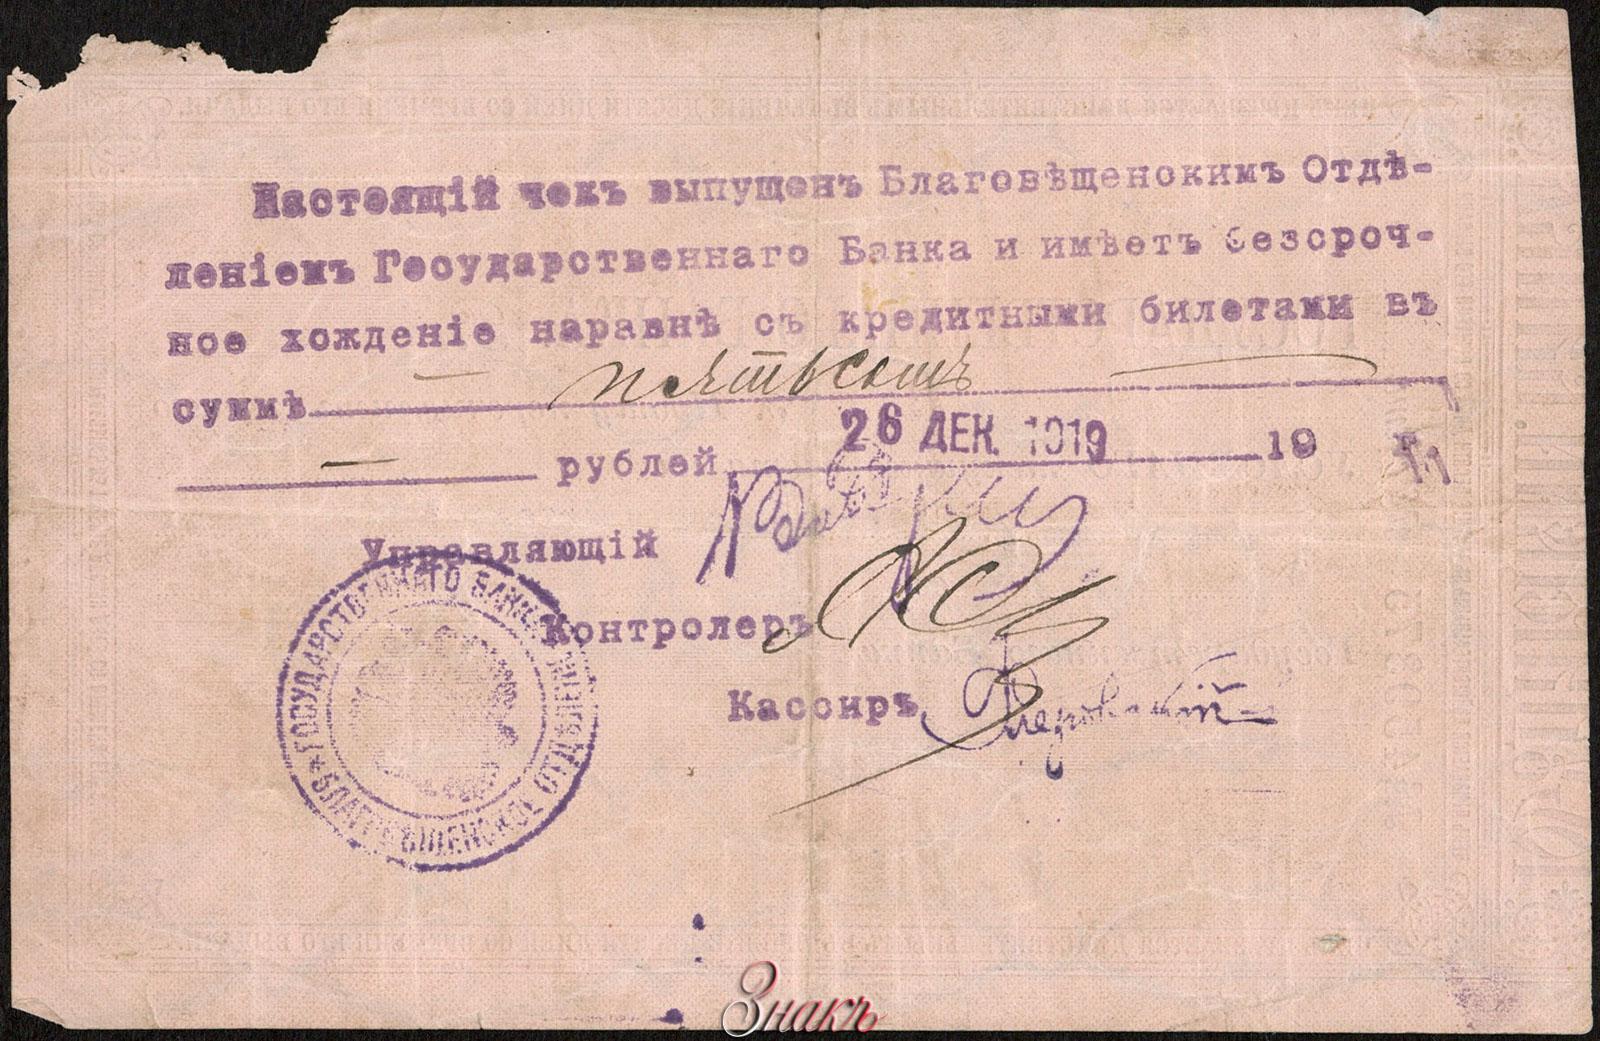 Настоящій чекъ выпущенъ Благовѣщенскимъ Отдѣ-
леніемъ Государственнаго Банка и имѣетъ безсроч-
ное хожденіе наравнѣ съ кредитными билетами въ
суммѣ пятьсотъ
рублей 26 ДЕК. 1919 19 г.
Управляющій
Контролеръ
Кассиръ
ГОСУДАРСТВЕННАГО БАНКА
БЛАГОВѢЩЕНСКОЕ ОТДѢЛЕНІЕ
Знакъ